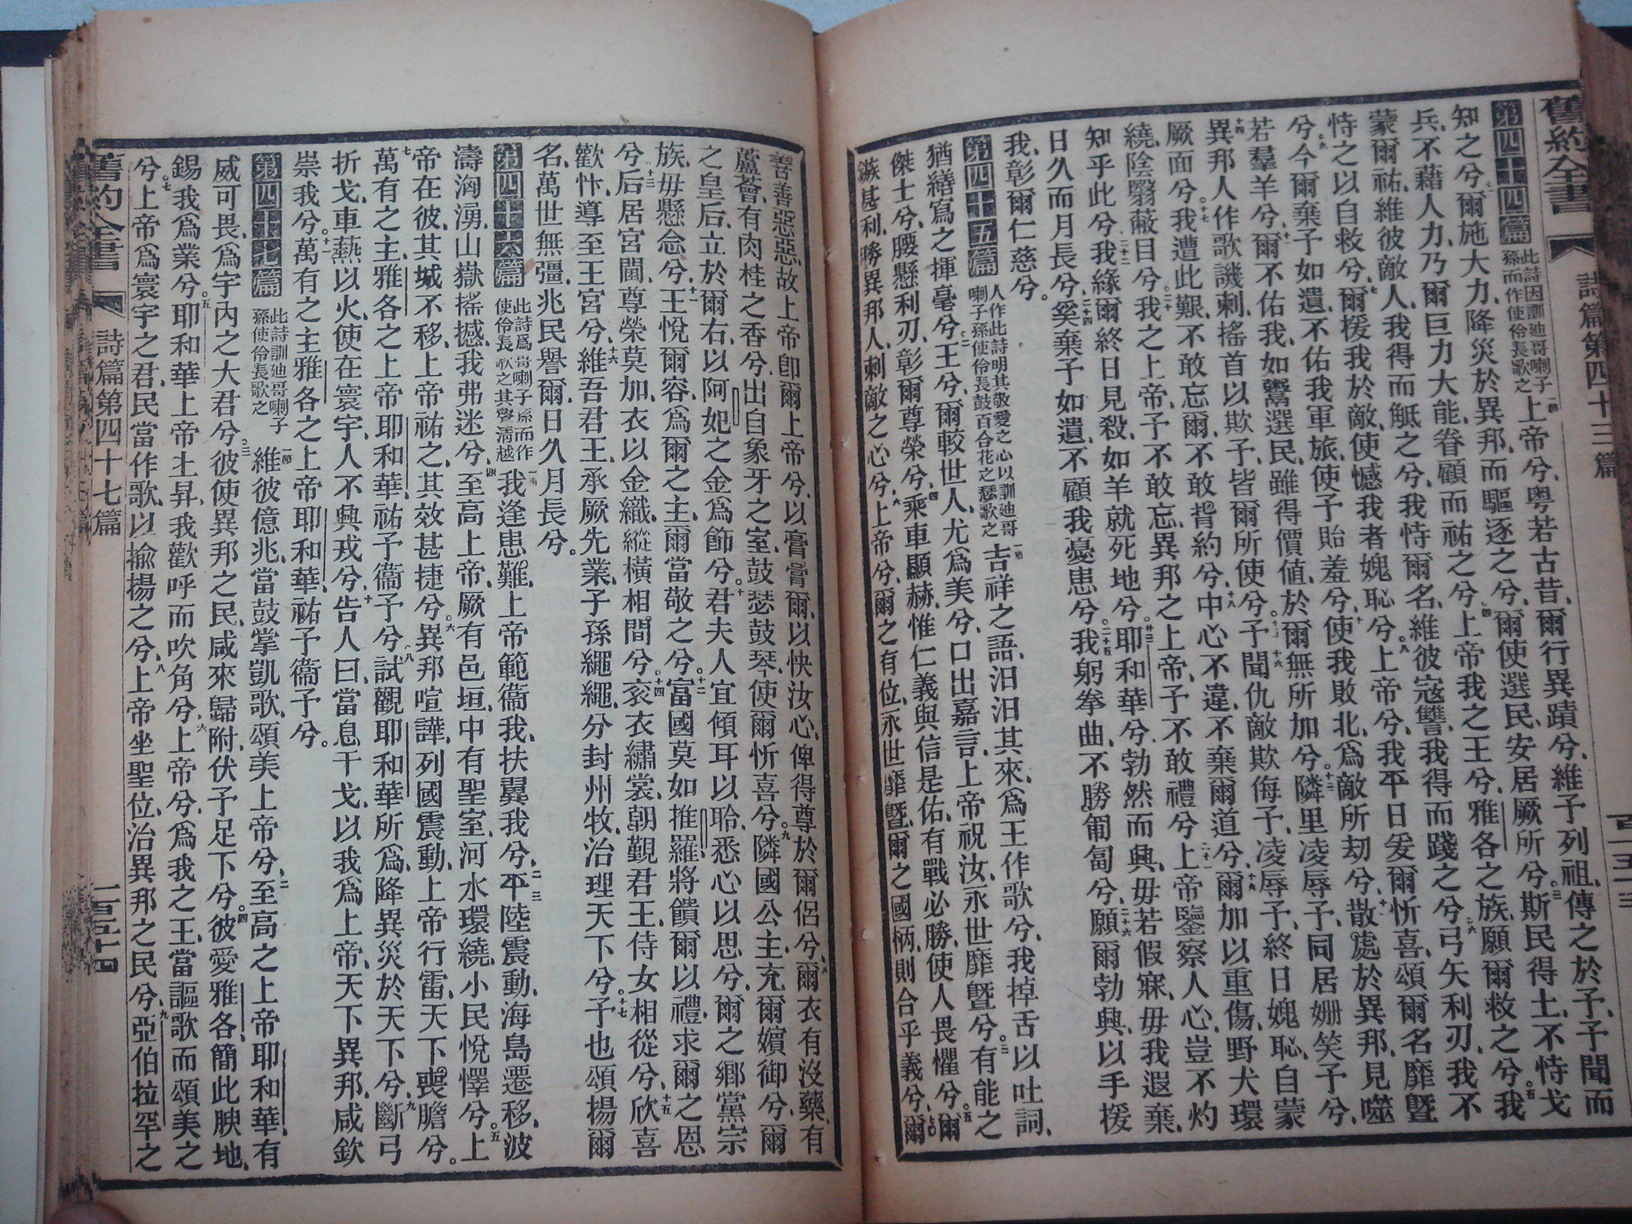 舊約全書 詩篇第四十三篇 一百五十三
第四十四篇 此詩因訓迪哥喇子孫而作使伶長歌之 一節上帝兮、粵若古昔、爾行異蹟兮、維予列祖、傳之於予、予聞而
知之兮、二爾施大力、降災於異邦、而驅逐之兮、爾使選民、安居厥所兮、三斯民得土、不恃戈
兵、不藉人力、乃爾巨力大能、眷顧而祐之兮、四上帝我之王兮、雅各之族、願爾救之兮、五我
蒙爾祐、維彼敵人、我得而觝之兮、我恃爾名、維彼寇讐、我得而踐之兮、六弓矢利刃、我不
恃之以自救兮、七爾援我於敵、使憾我者媿恥兮、八上帝兮、我平日爰爾忻喜、頌爾名靡曁
兮、九今爾棄予如遺、不佑我軍旅、使予貽羞兮、十使我敗北、爲敵所劫兮、十一散處於異邦、見噬
若羣羊兮、十二爾不佑我、如鬻選民、雖得價值、於爾無所加兮、十三隣里凌辱予、同居姗笑予兮、
十四異邦人作歌譏刺、搖首以欺予、皆爾所使兮、十五十六予聞仇敵欺侮予、凌辱予、終日媿恥、自蒙
厥面兮、十七我遭此艱、不敢忘爾、不敢背約兮、十八中心不違、不棄爾道兮、十九爾加以重傷、野犬環
繞、陰翳蔽目兮、二十我之上帝、予不敢忘、異邦之上帝、予不敢禮兮、二十一上帝鑒察人心、豈不灼
知乎此兮、二十二我緣爾終日見殺、如羊就死地兮、二十三耶和華兮、勃然而興、毋若假寐、毋我遐棄、
日久而月長兮、二十四奚棄予如遺、不顧我憂患兮、二十五我躬拳曲、不勝匍匐兮、二十六願爾勃興、以手援
我、彰爾仁慈兮。
第四十五篇 人作此詩明其敬愛之心以訓迪哥喇子孫使伶長鼓百合花之瑟歌之 一節吉祥之語、汨汨其來、爲王作歌兮、我掉舌以吐詞、
猶繕寫之揮毫兮、二王兮、爾較世人、尤爲美兮、口出嘉言、上帝祝汝、永世靡曁兮、三有能之
傑士兮、腰懸利刃、彰爾尊榮兮、四乘車顯赫、惟仁義與信是佑、有戰必勝、使人畏懼兮、五爾
鏃甚利、勝異邦人、刺敵之心兮、六上帝兮、爾之有位、永世靡曁、爾之國柄、則合乎義兮、七爾
善善惡惡、故上帝卽爾上帝兮、以膏膏爾、以快汝心、俾得尊於爾侶兮、八爾衣有沒藥、有
蘆薈、有肉桂之香兮、出自象牙之室、鼓瑟鼓琴、使爾忻喜兮、九隣國公主、充爾嬪御兮、爾
之皇后、立於爾右、以阿妃之金爲飾兮、十君夫人宜傾耳以聆、悉心以思兮、爾之鄉黨宗
族、毋懸念兮、十一王悅爾容、爲爾之主、爾當敬之兮、十二富國莫如推羅、將饋爾以禮、求爾之恩
兮、十三后居宮闈、尊榮莫加、衣以金織、縱橫相間兮、十四衮衣繡裳、朝覲君王、侍女相從兮、十五欣喜
歡忭、導至王宮兮、十六維吾君王、承厥先業、子孫繩繩、分封州牧、治理天下兮、十七予也頌揚爾
名、萬世無彊、兆民譽爾、日久月長兮。
第四十六篇 此詩爲哥喇子孫而作使伶長歌之其聲淸越 一節我逢患難、上帝範衞我、扶翼我兮、二三平陸震動、海島遷移、波
濤洶湧、山嶽搖撼、我弗迷兮、四至高上帝、厥有邑垣、中有聖室、河水環繞、小民悅懌兮、五上
帝在彼、其城不移、上帝祐之、其效甚捷兮、六異邦喧譁、列國震動、上帝行雷、天下喪膽兮、
七萬有之主、雅各之上帝、耶和華、祐予衞予兮、八試觀耶和華所爲、降異災於天下兮、九斷弓
折戈、車爇以火、使在寰宇、人不興戎兮、十告人曰、當息干戈、以我爲上帝、天下異邦、咸欽
崇我兮、十一萬有之主、雅各之上帝、耶和華、祐予衞予兮。
第四十七篇 此詩訓迪哥喇子孫使伶長歌之 一節維彼億兆、當鼓掌凱歌、頌美上帝兮、二至高之上帝耶和華、有
威可畏、爲宇內之大君兮、三彼使異邦之民、咸來歸附、伏予足下兮、四彼愛雅各、簡此腴地、
錫我爲業兮、五耶和華上帝上昇、我歡呼而吹角兮、六上帝兮、爲我之王、當謳歌而頌美之
兮、七上帝爲寰宇之君、民當作歌、以揄揚之兮、八上帝坐聖位、治異邦之民兮、九亞伯拉罕之
舊約全書 詩篇第四十七篇 一百五十四